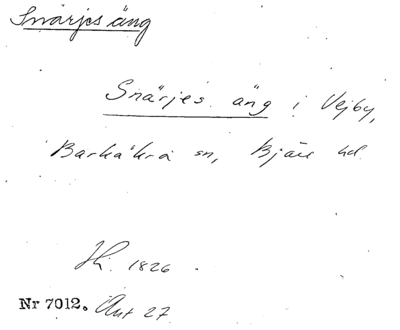 Snärjes äng
Snärjes äng i Vejby,
Barkåkra sn, Bjäre hd.
1826
Nr 7012. Ant 27